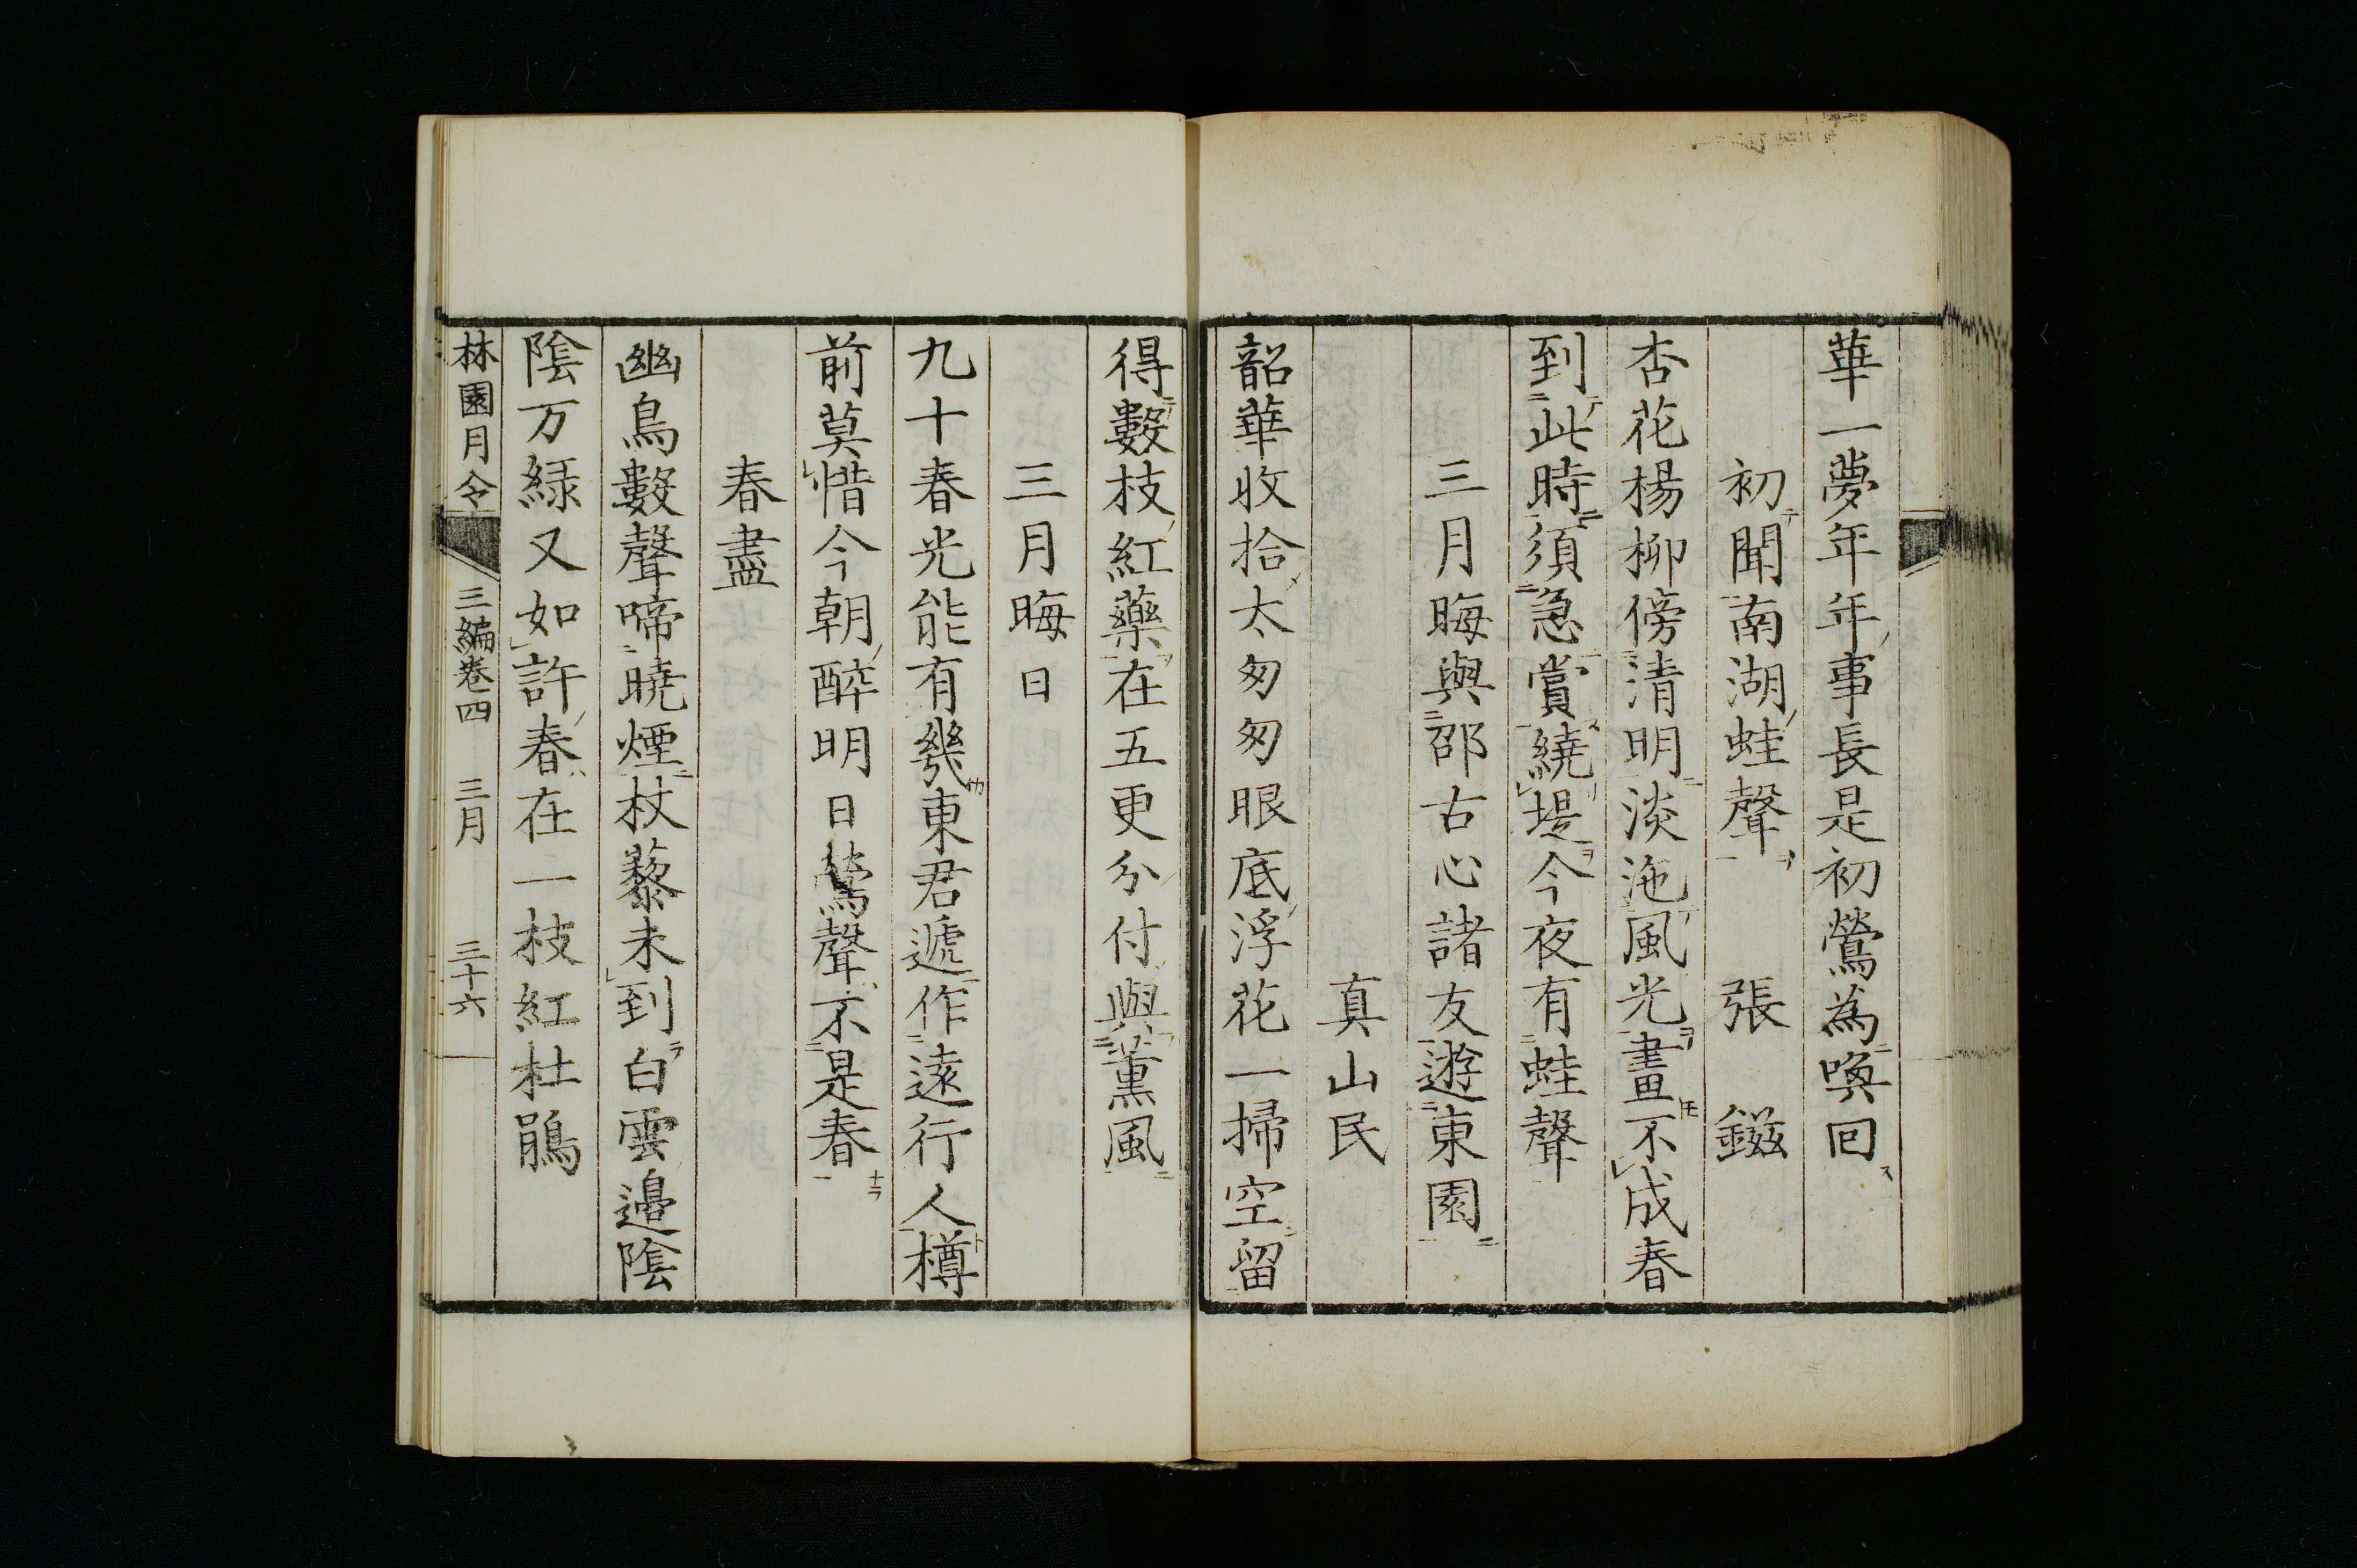 華一夢年年事長是初鶯為喚回
初聞南湖蛙聲　張　鎡
杏花楊柳傍清明淡沲風光畫不成春
到此時須急賞繞堤今夜有蛙聲
三月晦與邵古心諸友遊東園
真山民
韶華收拾太匆匆眼底浮花一掃空留
得數枝紅藥在五更分付與薰風
三月晦日
九十春光能有幾東君遞作遠行人樽
前莫惜今朝醉明日鶯聲不是春
春盡
幽鳥數聲啼曉煙杖藜未到白雲邊陰
陰万緑又如許春在一枝紅杜鵑
林園月令　三編卷四　三月　三十六